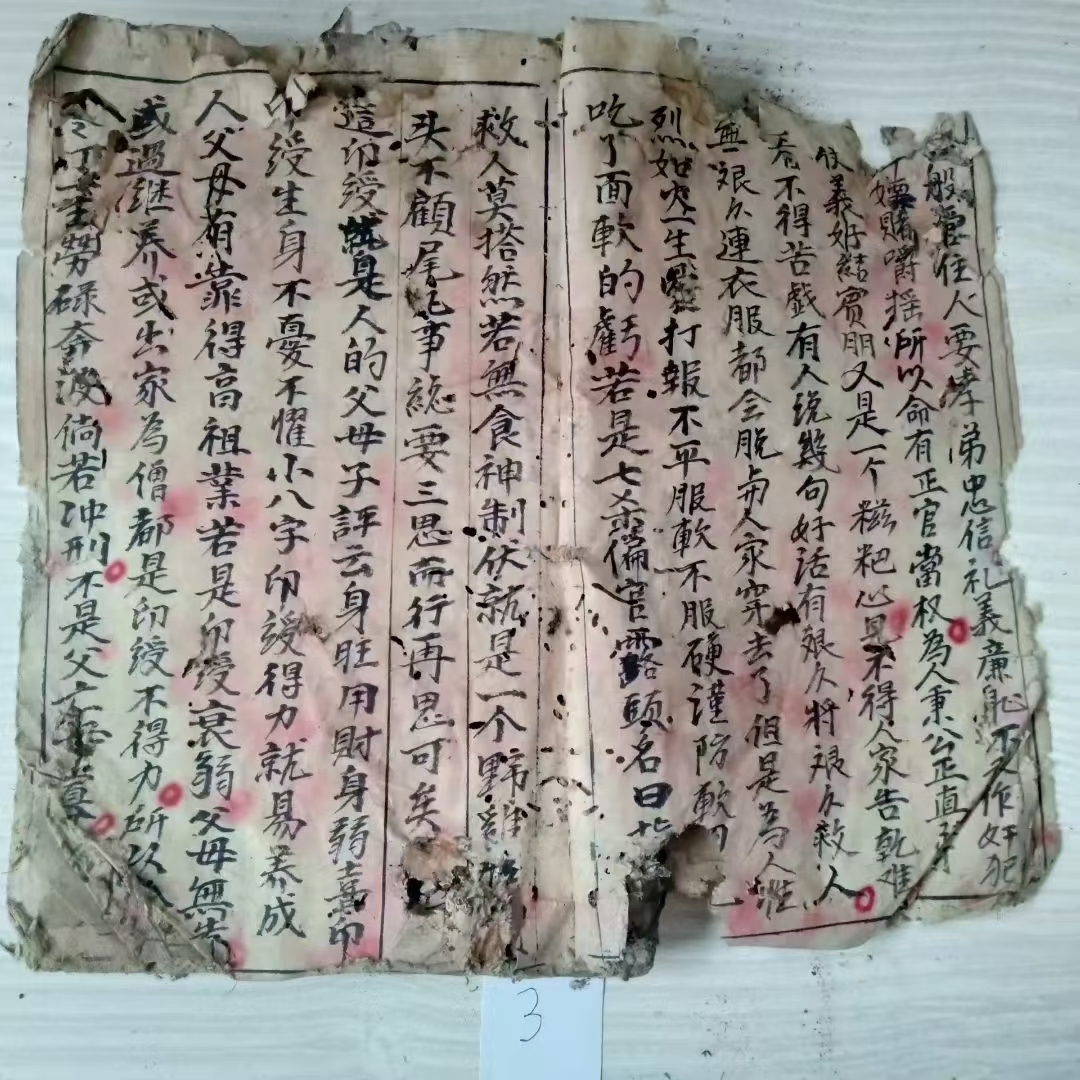 般管住人要孝弟忠信礼義廉耻不又作奸犯
嫖賭嚼摇所以命有正官當权為人秉公正直
仗義好結賓朋又是一个糍粑心見不得人家告乾难
看不得苦戯有人説幾句好话有艰久将艰久救人
無艰久連衣服都会脱与人家穿去了但是為人
烈如火生打報不平服軟不服硬謹防軟
吃了面軟的虧若是七杀偏官露頭名曰
救人莫搭然若無食神制伏就是一个野
头不顧尾凡事総要三思而行再思可矣
這印绶就是人的父母子評云身旺用財身弱喜印
印绶生身不憂不懼小八字印绶得力就易养成
人父母有靠得高祖業若是印绶衰弱父母無
或過継养或出家為僧都是印绶不得力所以
劳碌奔波倘若冲刑不是父
3